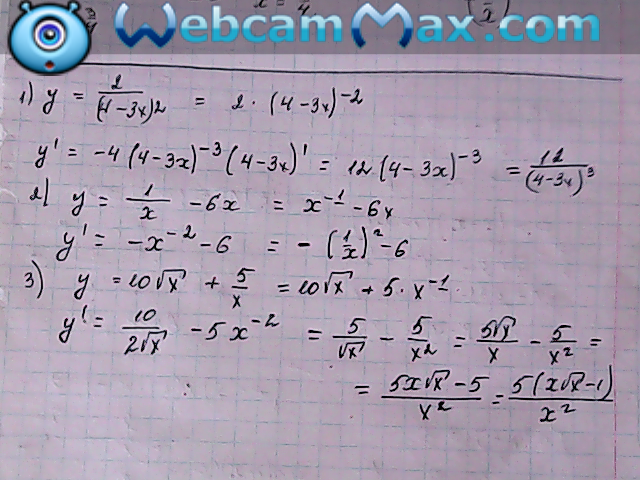 WebcamMax.com
1) y = 2/(4-3x)2 = 2·(4-3x)^-2
y' = -4(4-3x)^-3(4-3x)' = 12(4-3x)^-3 = 12/(4-3x)^3
2) y = 1/x -6x = x^-1 -6x
y' = -x^-2 -6 = -(1/x)^2 -6
3) y = 10√x + 5/x = 10√x + 5·x^-1
y' = 10/2√x - 5x^-2 = 5/√x - 5/x^2 = 5√x/x - 5/x^2 =
= 5x√x - 5/x^2 = 5(x√x-1)/x^2